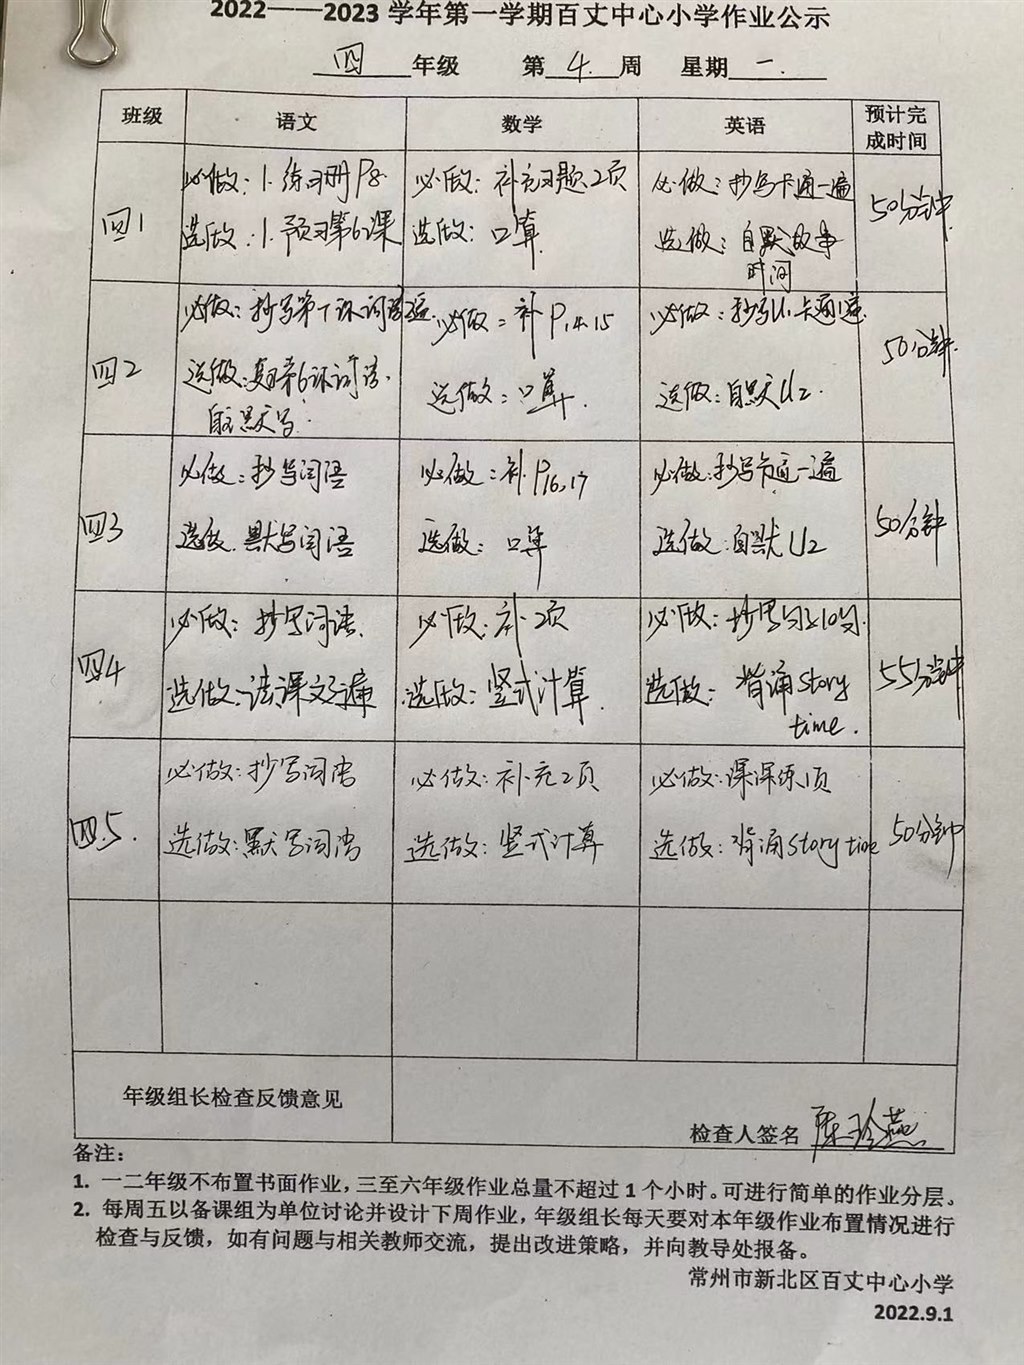 2022——2023学年第一学期百丈中心小学作业公示
四 年级 第 4. 周 星期 一.
班级 语文 数学 英语 预计完成时间
四1
必做：1.练习册P8.
选做：1.预习第6课
必做：补充习题2页
选做：口算
必做：抄写卡通一遍
选做：自默故事
时间
50分钟
四2
必做：抄写第7课词语2遍.
选做：复习第6课词语.
自主默写.
必做：补P14.15
选做：口算.
必做：抄写U1卡通1遍
选做：自默U2.
50分钟.
四3
必做：抄写词语
选做.默写词语
必做：补.P16,17
选做：口算
必做：抄写卡通一遍
选做.自默U2
50分钟
四4
必做：抄写词语.
选做：读课文3遍
必做：补2页
选做：竖式计算.
必做：抄写句型10句.
选做：背诵story
time.
55分钟
四.5.
必做：抄写词语
选做：默写词语
必做：补充2页
选做：竖式计算
必做：课课练1页
选做：背诵story time
50分钟
年级组长检查反馈意见
检查人签名
备注：
1. 一二年级不布置书面作业，三至六年级作业总量不超过1个小时。可进行简单的作业分层。
2. 每周五以备课组为单位讨论并设计下周作业，年级组长每天要对本年级作业布置情况进行
检查与反馈，如有问题与相关教师交流，提出改进策略，并向教导处报备。
常州市新北区百丈中心小学
2022.9.1